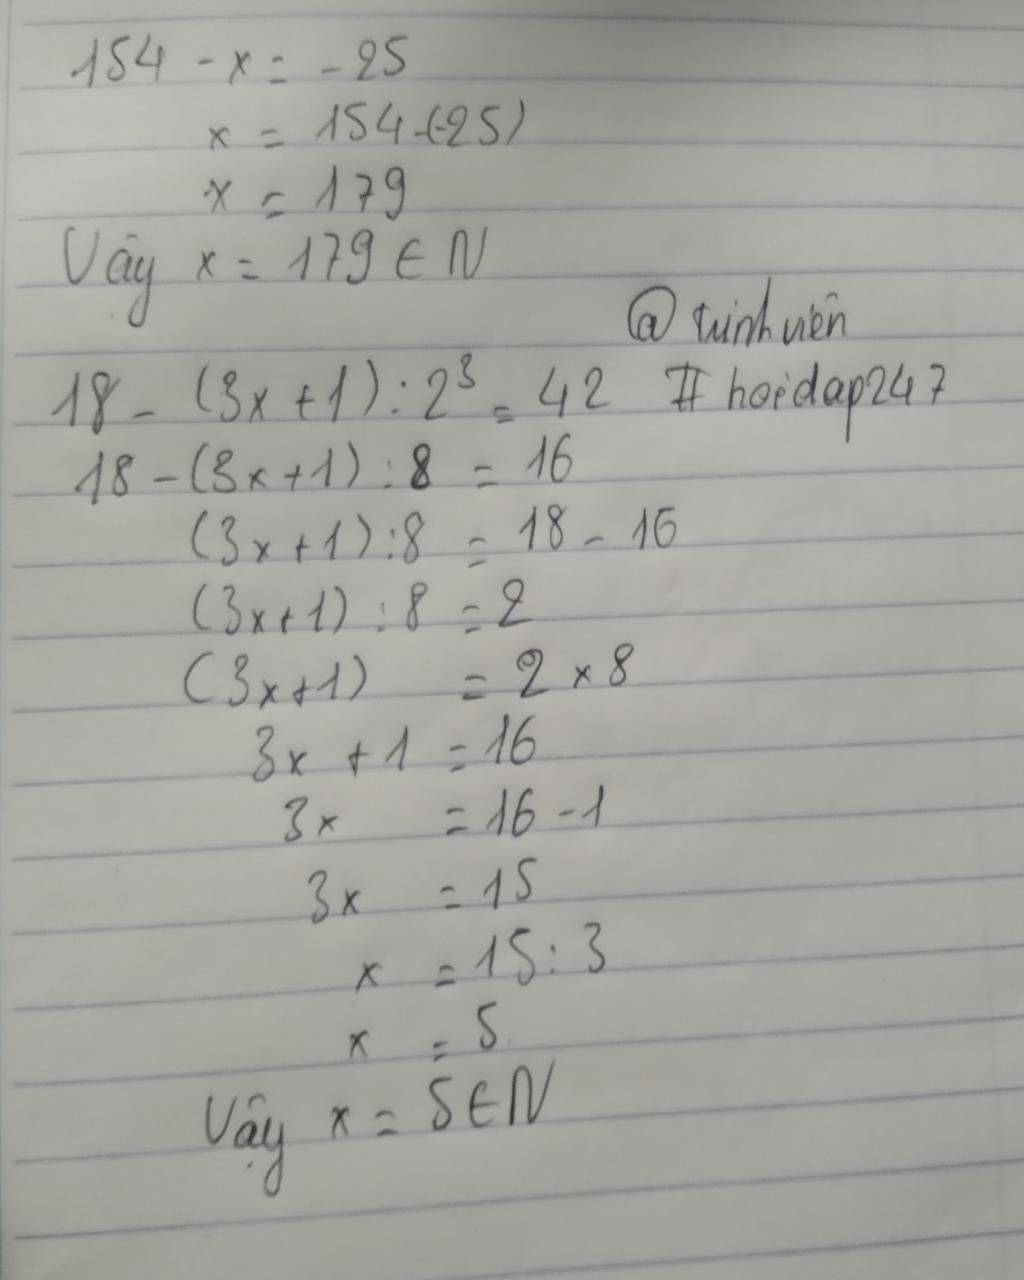 154 - x = -25
x = 154-(-25)
x = 179
Vậy x = 179 ∈ N
@ trinhviên
18 - (3x+1) : 2³ = 42 # hoidap247
18 - (3x+1) : 8 = 16
(3x+1) : 8 = 18 - 16
(3x+1) : 8 = 2
(3x+1) = 2 x 8
3x + 1 = 16
3x = 16 - 1
3x = 15
x = 15 : 3
x = 5
Vậy x = 5 ∈ N